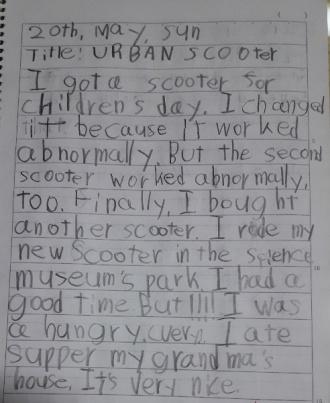 20th, May, Sun
Title: URBAN SCOOter
I got a scooter for
children's day. I changed
it because It worked
abnormally. But the second
scooter worked abnormally,
too. Finally, I bought
another scooter. I rode my
new scooter in the science
museum's park. I had a
good time. But!!!! I was
a hungry. very. I ate
supper my grandma's
house. It's very nice.